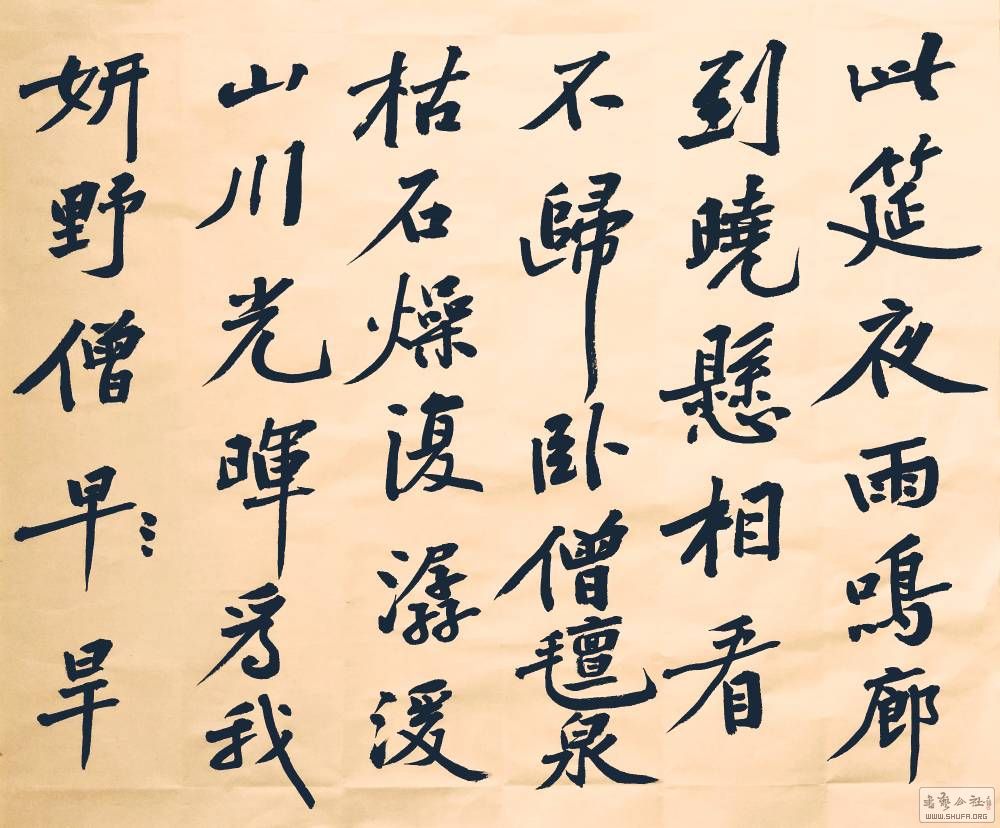 此筵夜雨鳴廊
到曉懸相看
不歸卧僧氈泉
枯石燥復潺湲
山川光暉爲我
妍野僧早旱
書藝公社
WWW.SHUFA.ORG